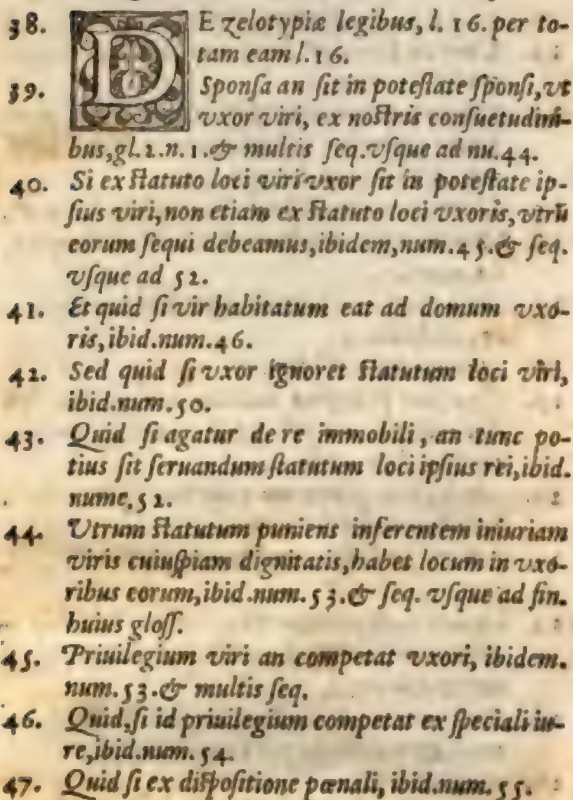 38. DE zelotypiæ legibus, l. 16. per to-
tam eam l. 16.
39. Sponsa an sit in potestate sponsi, vt
vxor viri, ex nostris consuetudini-
bus, gl. 1. n. 1. & multis seq. vsque ad nu. 44.
40. Si ex statuto loci viri vxor sit in potestate ip-
sius viri, non etiam ex statuto loci vxoris, vtrũ
eorum sequi debeamus, ibidem, num. 45. & seq.
vsque ad 52.
41. Et quid si vir habitatum eat ad domum vxo-
ris, ibid. num. 46.
42. Sed quid si vxor ignoret statutum loci viri,
ibid. num. 50.
43. Quid si agatur de re immobili, an tunc po-
tius sit seruandum statutum loci ipsius rei, ibid.
nume. 52.
44. Utrum statutum puniens inferentem iniuriam
viris cuiuspiam dignitatis, habet locum in vxo-
ribus eorum, ibid. num. 53. & seq. vsque ad fin.
huius gloss.
45. Priuilegium viri an competat vxori, ibidem.
num. 53. & multis seq.
46. Quid, si id priuilegium competat ex speciali iu-
re, ibid. num. 54.
47. Quid si ex dispositione pœnali, ibid. num. 55.